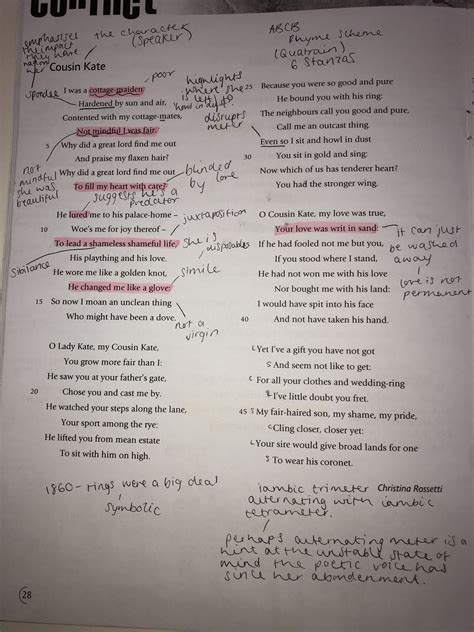 Conflict
emphasises
the impact
they have
had on
her
the character
(speaker)
ABCB
Rhyme Scheme
(Quatrain)
6 Stanzas
Cousin Kate
poor
spondee
I was a cottage-maiden
Hardened by sun and air,
Contented with my cottage-mates,
Not mindful I was fair.
5 Why did a great lord find me out
And praise my flaxen hair?
Why did a great lord find me out
To fill my heart with care?
highlights
where she
is left to
disrupts
meter
not
mindful
she was
beautiful
blinded
by love
suggests he's a
predator
He lured me to his palace-home –
10 Woe's me for joy thereof –
To lead a shameless shameful life,
His plaything and his love.
He wore me like a golden knot,
He changed me like a glove:
15 So now I moan an unclean thing
Who might have been a dove.
juxtaposition
She is
disposable
Sibilance
simile
not a
virgin
O Lady Kate, my Cousin Kate,
You grow more fair than I:
He saw you at your father's gate,
20 Chose you and cast me by.
He watched your steps along the lane,
Your sport among the rye:
He lifted you from mean estate
To sit with him on high.
1860 - rings were a big deal
symbolic
25 Because you were so good and pure
He bound you with his ring:
The neighbours call you good and pure,
Call me an outcast thing.
Even so I sit and howl in dust
30 You sit in gold and sing:
Now which of us has tenderer heart?
You had the stronger wing.
O Cousin Kate, my love was true,
Your love was writ in sand:
35 If he had fooled not me but you,
If you stood where I stand,
He had not won me with his love
Nor bought me with his land:
I would have spit into his face
40 And not have taken his hand.
it can just
be washed
away
love is not
permanent
Yet I've a gift you have not got
And seem not like to get:
For all your clothes and wedding-ring
I've little doubt you fret.
45 My fair-haired son, my shame, my pride,
Cling closer, closer yet:
Your sire would give broad lands for one
To wear his coronet.
Christina Rossetti
iambic trimeter
alternating with iambic
tetrameter.
perhaps alternating meter is a
hint at the unstable state of
mind the poetic voice has
since her abandonment.
28